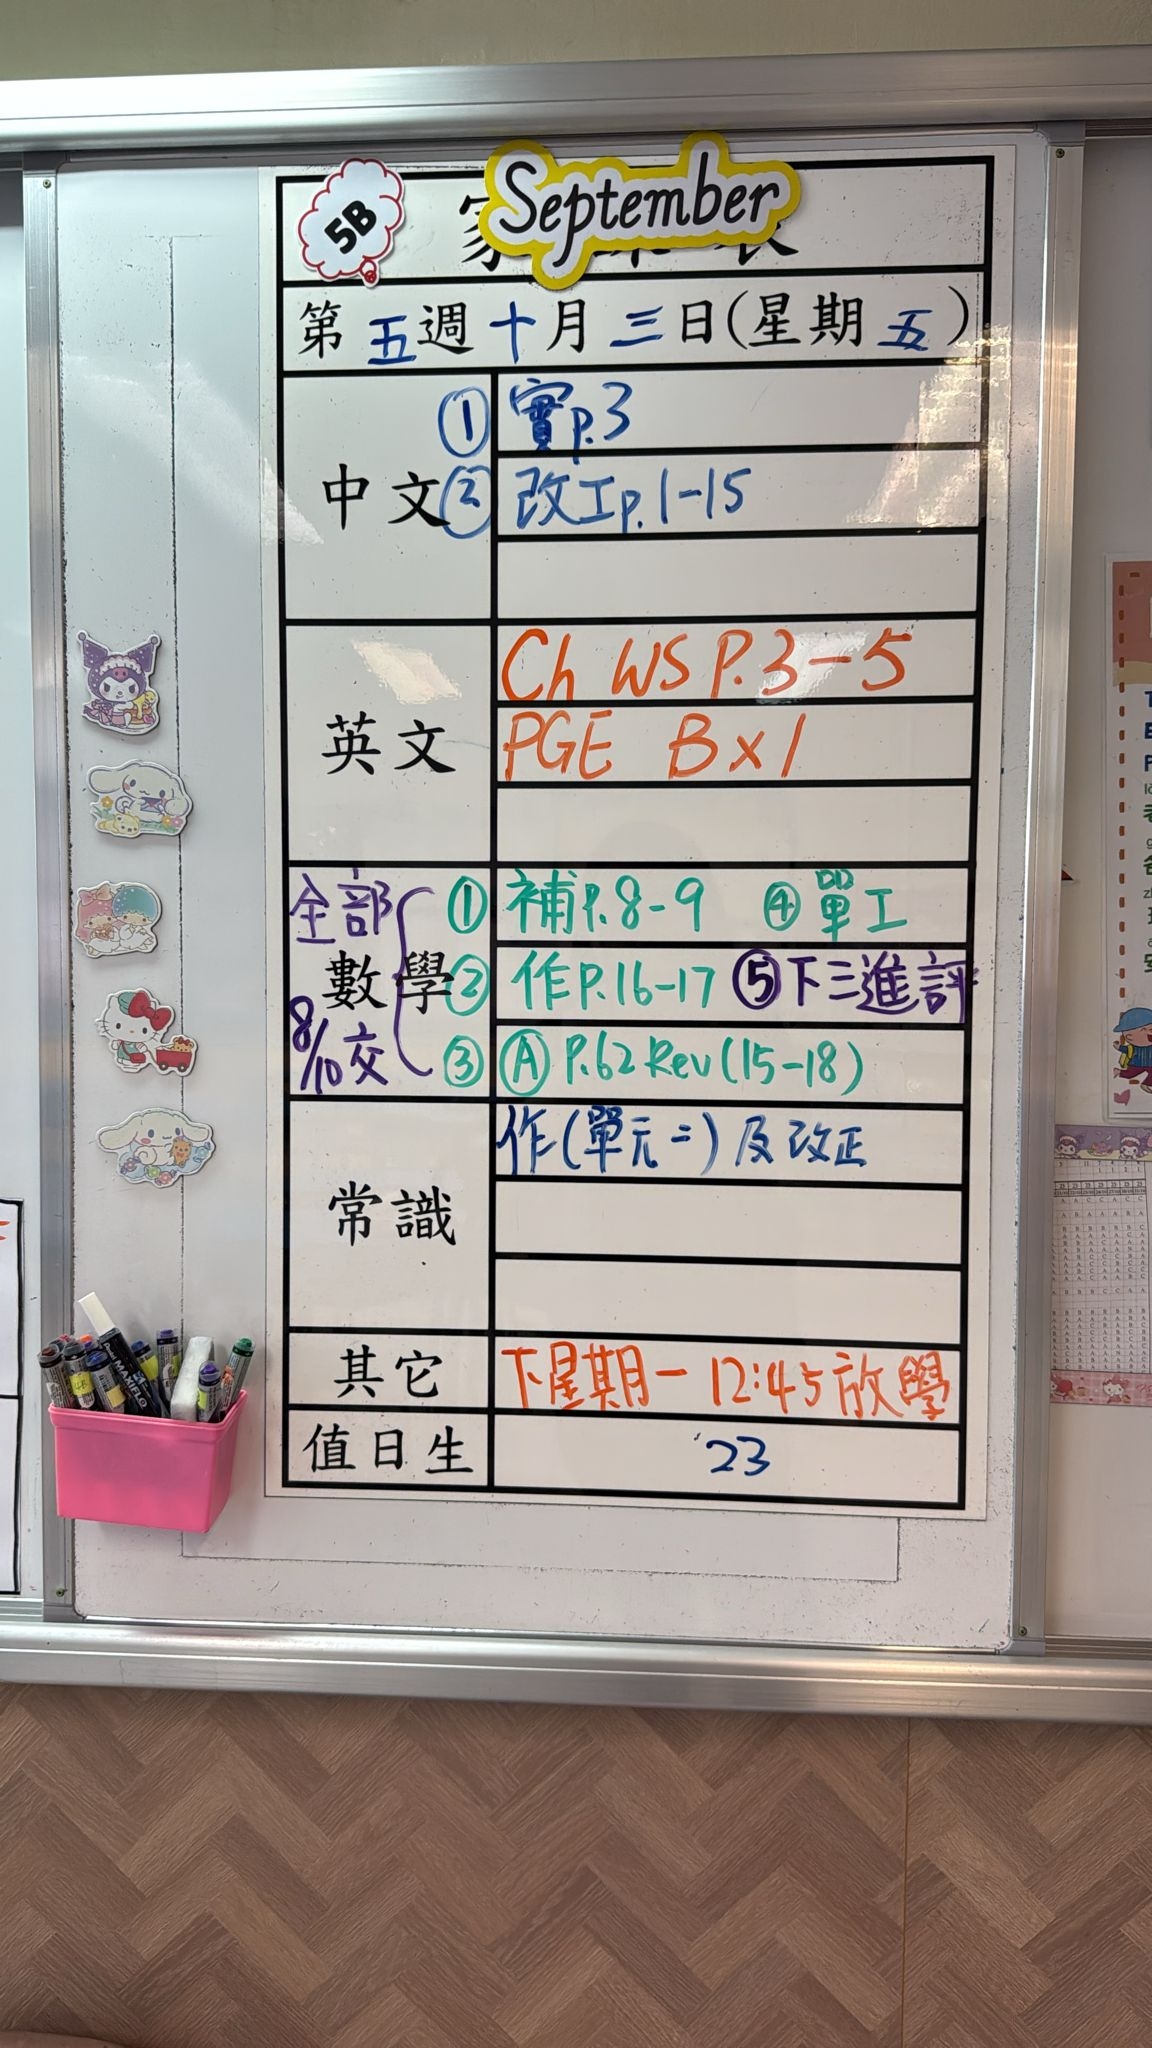 5B
September
第五週十月三日(星期五)
中文
① 實p.3
② 改工p.1-15
英文
Ch WS P.3-5
PGE B×1
數學
全部
8/10交
① 補P.8-9 ④ 單工
② 作P.16-17 ⑤下三進評
③ Ⓐ P.62 Rev (15-18)
常識
作(單元二)及改正
其它
下星期一 12:45放學
值日生
23